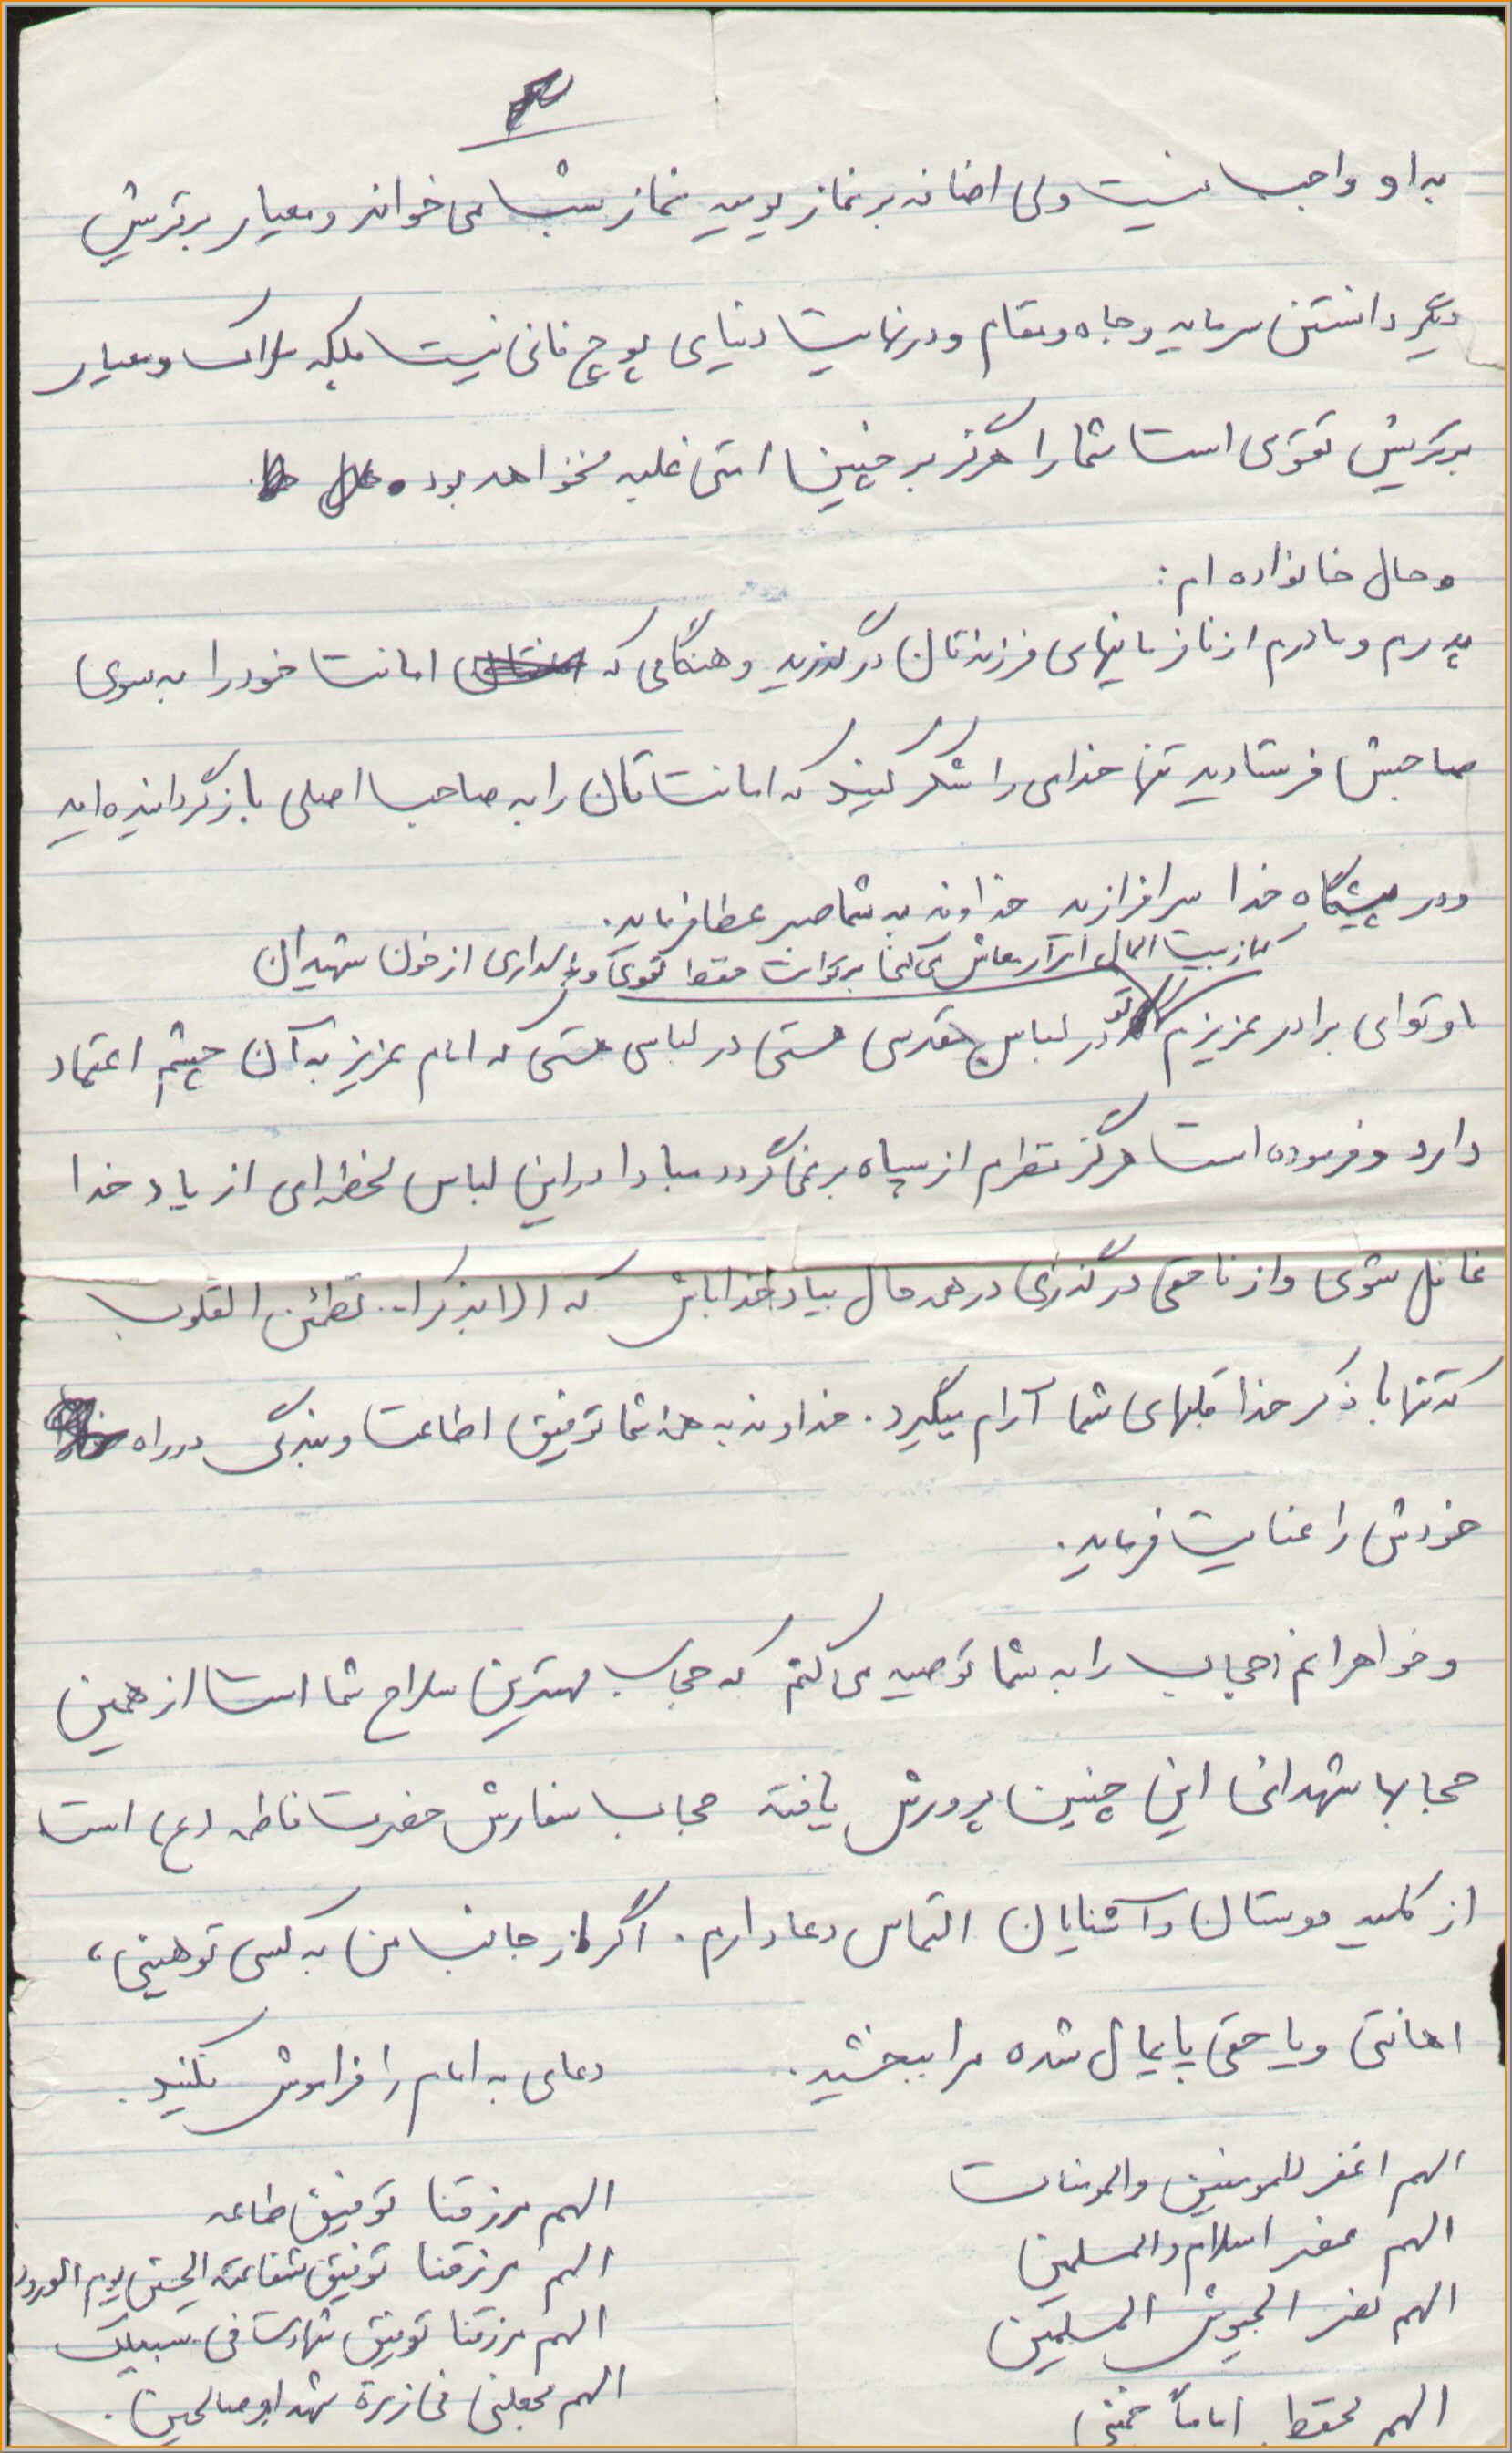 به او واجب نیست ولی اضافه بر نماز یومیه نماز شب می خواند و معیار برترش
دیگر داشتن سرمایه و جاه و مقام و در نهایت دنیای پوچ فانی نیست بلکه ملاک و معیار
برتریش تقوی است شما را هرگز بر چنین امتی غلبه نخواهد بود.
و حال خانواده ام:
پدرم و مادرم از نافرمانیهای فرزندتان درگذرید و هنگامی که امانت خود را به سوی
صاحبش فرستادید تنها خدای را شکر کنید که امانت تان را به صاحب اصلی بازگردانیده اید
و در پیشگاه خدا سرافرازید خداوند به شما صبر عطا فرماید.
از بیت المال امرار معاش می کنی برتوانت فقط تقوی و پاسداری از خون شهیدان
و تو ای برادر عزیزم تو در لباس مقدسی هستی در لباسی هستی که امام عزیز به آن چشم اعتماد
دارد و فرموده است هرگز نظرم از سپاه برنمی گردد مبادا در این لباس لحظه ای از یاد خدا
غافل شوی و از ناحقی درگذری در همه حال بیاد خدا باش که الا بذکرا.. تطمئن القلوب
که تنها با ذکر خدا قلبهای شما آرام میگیرد. خداوند به همه شما توفیق اطاعت و بندگی در راه
خودش را عنایت فرماید.
و خواهرانم حجاب را به شما توصیه می کنم که حجاب بهترین سلاح شما است از همین
حجابها شهدائی این چنین پرورش یافته حجاب سفارش حضرت فاطمه (ع) است
از کلیه دوستان و آشنایان التماس دعا دارم. اگر از جانب من به کسی توهینی،
اهانتی و یا حقی پایمال شده مرا ببخشید.
دعای به امام را فراموش نکنید.
الهم اغفر للمومنین والمومنات
الهم اسلام والمسلمین
الهم نصر الجیوش المسلمین
الهم اماماً خمینی
الهم مرزقنا توفیق طاعه
الهم مرزقنا توفیق شفاعة الحسین یوم الورود
الهم مرزقنا توفیق شهادت فی سبیلک
الهم فی زمرة شهدا و صالحین.